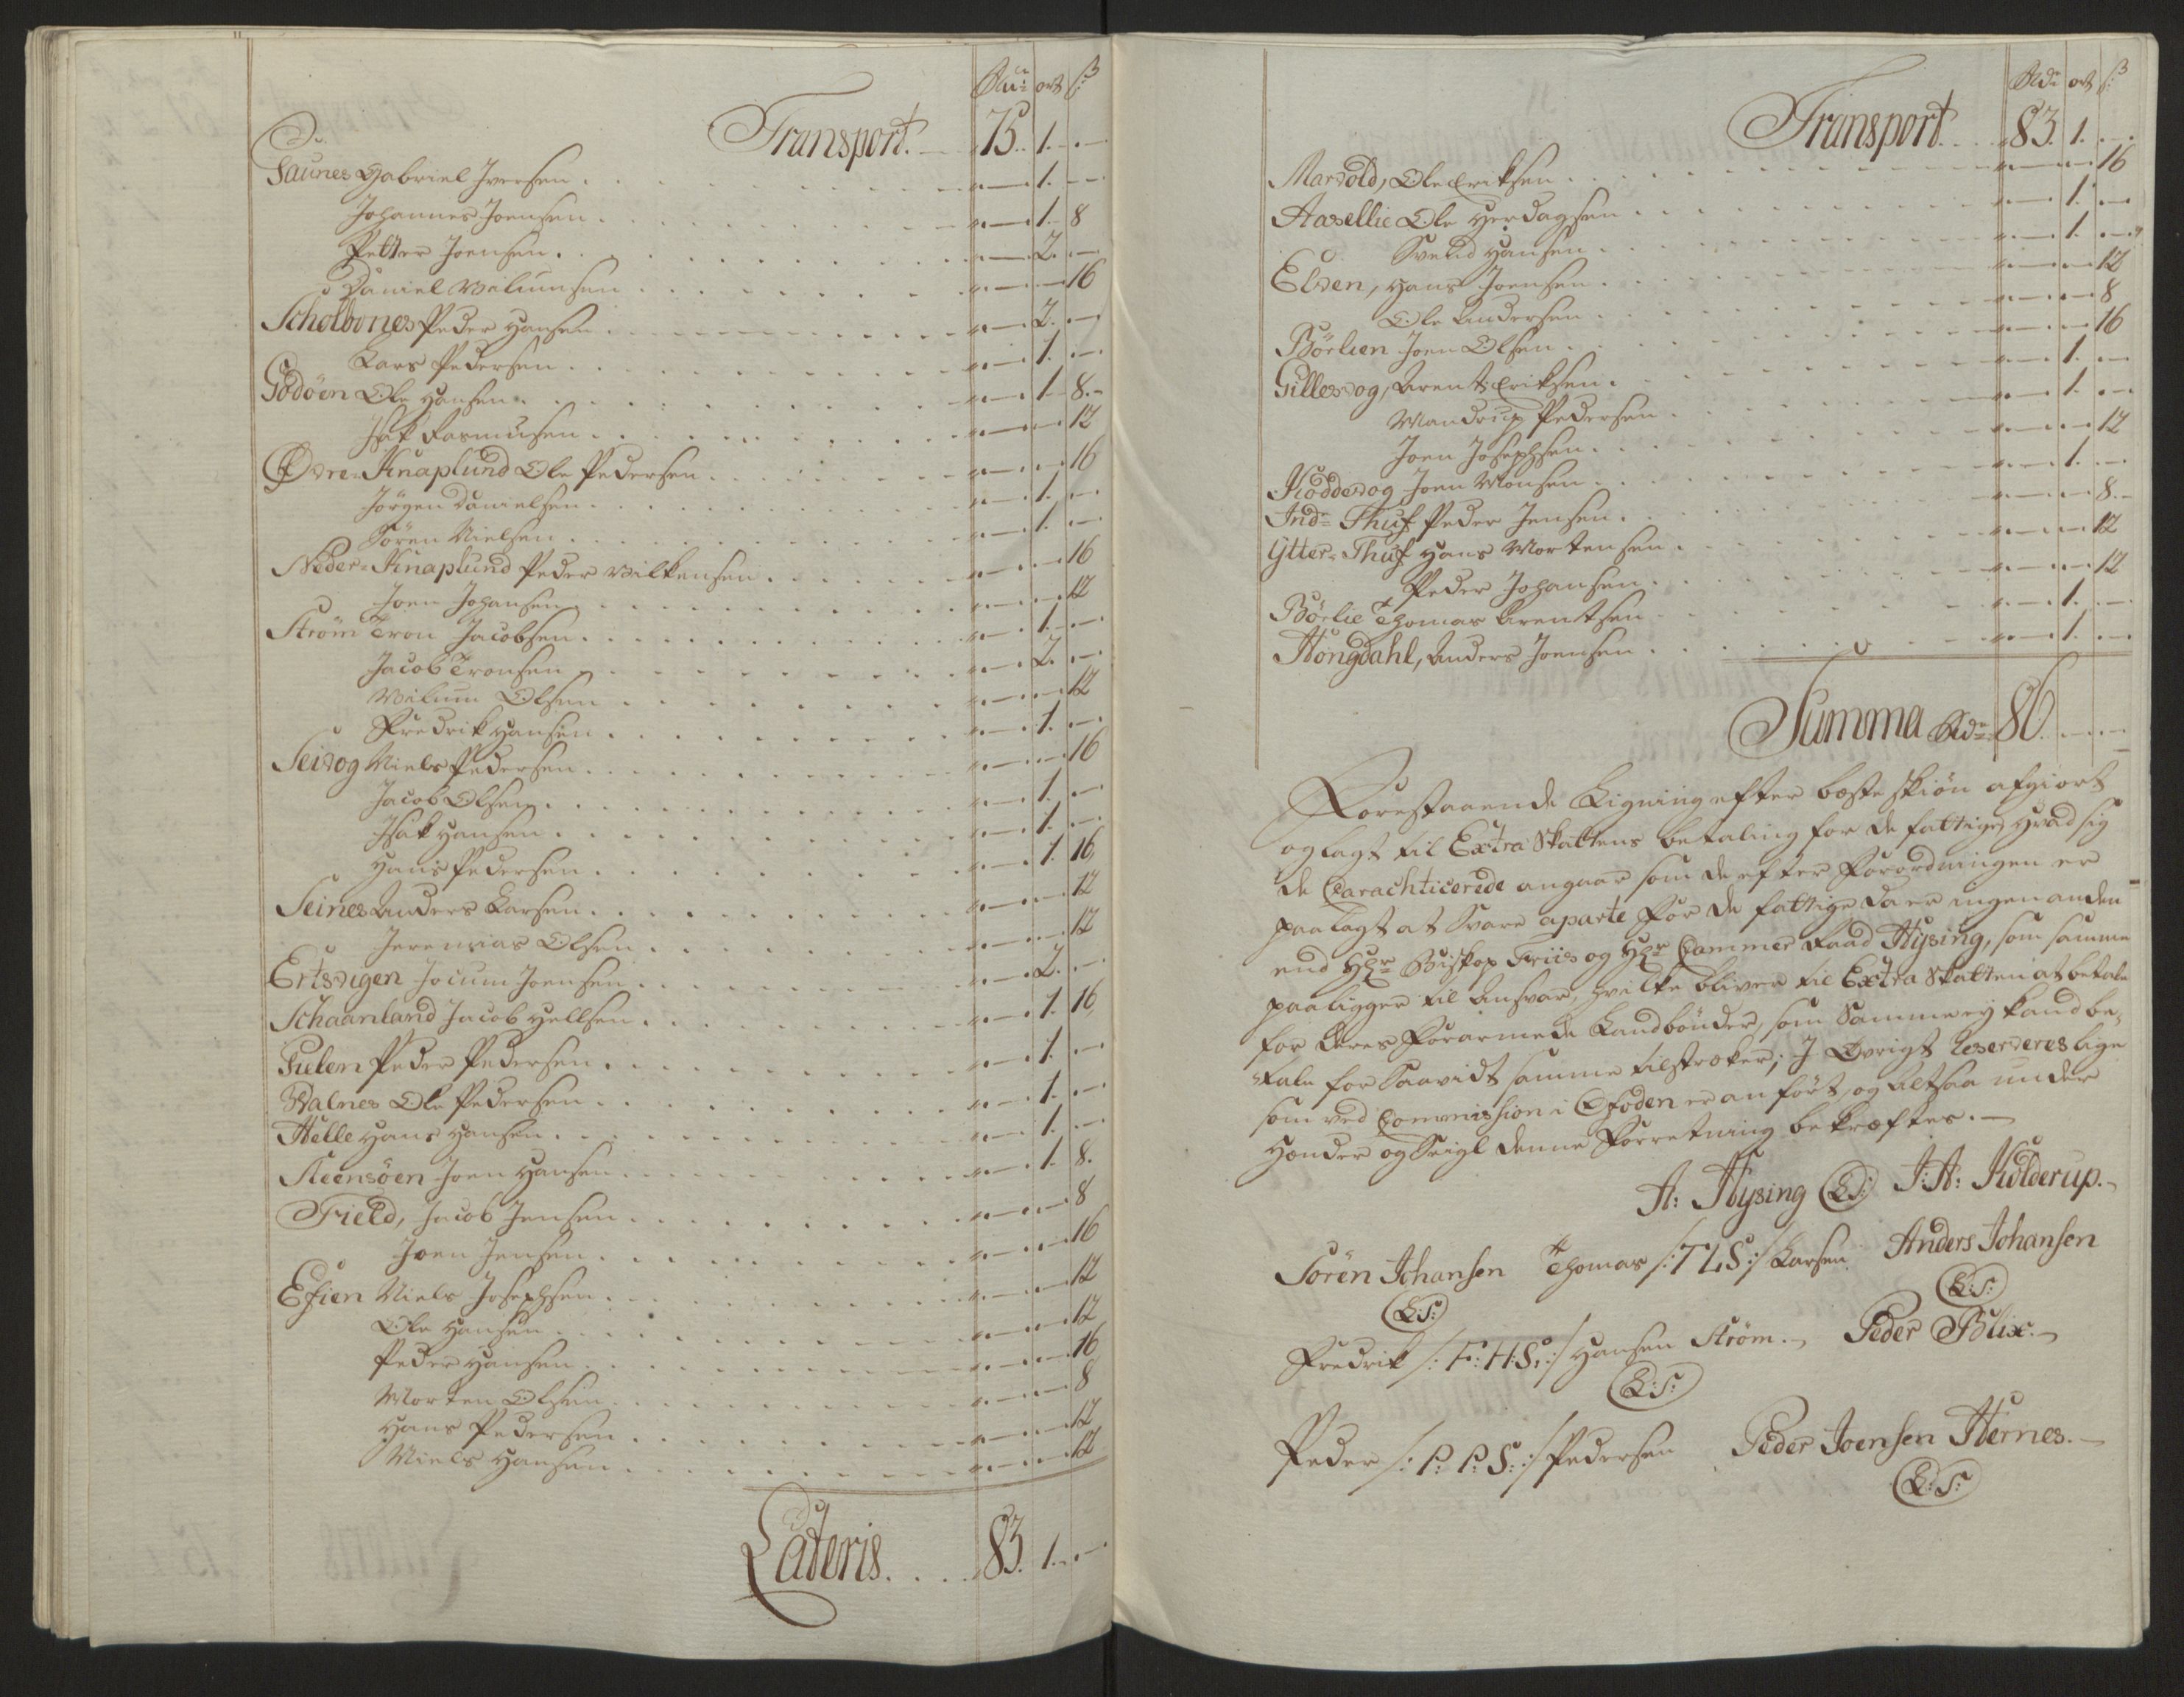 Rdr ort ß
Transport. 75. 1. -
Saunes Gabriel Iversen. 1. -
Johannes Joensen. 1. 8
Petter Joensen. 2. -
Daniel Willumsen 16
Scholbones Peder Hansen. 2. -
Lars Pedersen. 1. -
Godöen Ole Hansen. 1. 8. -
Isak Rasmusen. 12
Øvre-Knaplund Ole Pedersen. 16
Jörgen Danielsen. 1. -
Sören Nielsen. 1. -
Neder-Knaplund Peder Wilkensen 16
Joen Johansen 12
Ström Tron Jacobsen. 1. -
Jacob Tronsen 2. -
Willum Olsen 12
Fredrik Hansen. 1. -
Seivog Niels Pedersen. 16
Jacob Olsen. 1. -
Isak Hansen. 1. -
Hans Pedersen. 1. 16
Seines Anders Larsen. 12
Jeremias Olsen 12
Ertsvigen Jocum Joensen. 2. -
Schaanland Jacob Hellsen. 1. 16
Tuelen Peder Pedersen. 1. -
Walnes Ole Pedersen. 1. -
Helle Hans Hansen. 1. -
Steensöen Joen Hansen. 1. 8.
Field, Jacob Jensen. 8
Joen Jensen. 16
Efien Niels Josephsen. 12
Ole Hansen. 12
Peder Hansen. 16
Morten Olsen. 8
Hans Pedersen. 12
Niels Hansen. 12
Lateris. 83. 1. -
Rdr ort ß
Transport. 83. 1. -
Marvold, Ole Eriksen. 16
Aasellie Ole Herdagsen 1. -
Svend Hansen. 1. -
Elven, Hans Joensen. 12
Ole Andersen. 8
Börlien Joen Olsen. 16
Gillesvog, Arent Eriksen. 1. -
Mandrup Pedersen. 1. -
Joen Josephsen. 12
Koddevog Joen Monsen. 1. -
Indr Thuf Peder Jensen. 8. -
Ytter-Thuf Hans Mortensen. 12
Peder Johansen. 12
Börlie Thomas Arentsen 1. -
Hongdahl, Anders Joensen. 1. -
Summa Rdr 86. - -
Forestaaende Ligning efter beste skiön afgiort
og lagt til Extra Skattens betaling for de fattige, hvad sig
de Carachticerede angaar som de efter Forordningen er
paalagt at Svare aparte for de fattige da er ingen anden
end Hr Biskop Friis og Hr Cammer Raad Hysing, som samme
paaligger til Ansvar, hvilke bliver til Extra Skatten at betale
for deres Forarmede Landbönder, som Samme ej kand be-
tale for Saavidt samme tilstræker; I Øvrigt lige
som ved Commission i Ofoden er anfört, og altsaa under
Hænder og Seigl denne Forretning bekræftes. -
A: Hysing (L:S:) J: A: Kolderup. -
Sören Johansen Thomas /: T L S :/ Larsen Anders Johansen
(L:S:) (L:S:)
Fredrik /: F: H: S: :/ Hansen Ström. - Peder Blix. -
(L:S:)
Peder /: P: P: S: :/ Pedersen Peder Joensen Hernes. -
(L:S:)